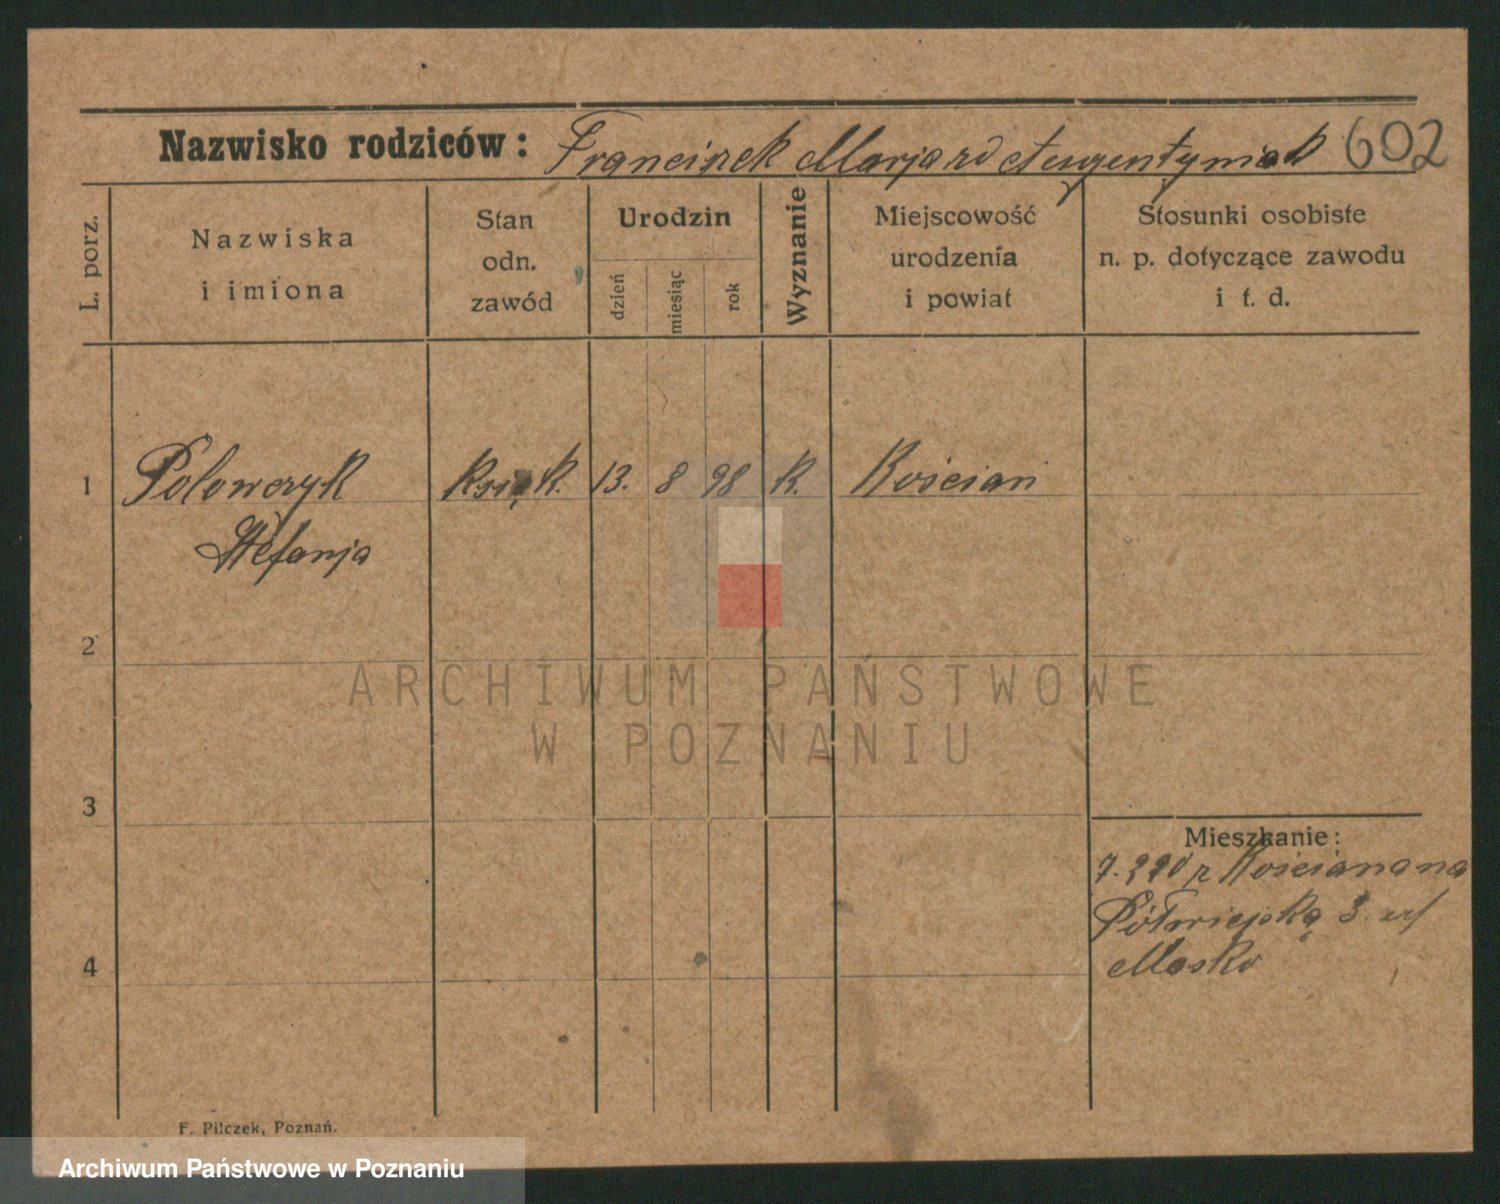 Nazwisko rodziców: Franciszek Marja zd Augustyniak 602
L. porz.
Nazwiska
i imiona
Stan
odn.
zawód
Urodzin
dzień
miesiąc
rok
Wyznanie
Miejscowość
urodzenia
i powiat
Stosunki osobiste
n. p. dotyczące zawodu
i t. d.
1 Polowczyk 13. 8 98 k. Kościan
Stefanja
2
ARCHIWUM PAŃSTWOWE
W POZNANIU
3
Mieszkanie:
z Kościana na
Półwiejską 3
4
F. Pilczek, Poznań.
Archiwum Państwowe w Poznaniu